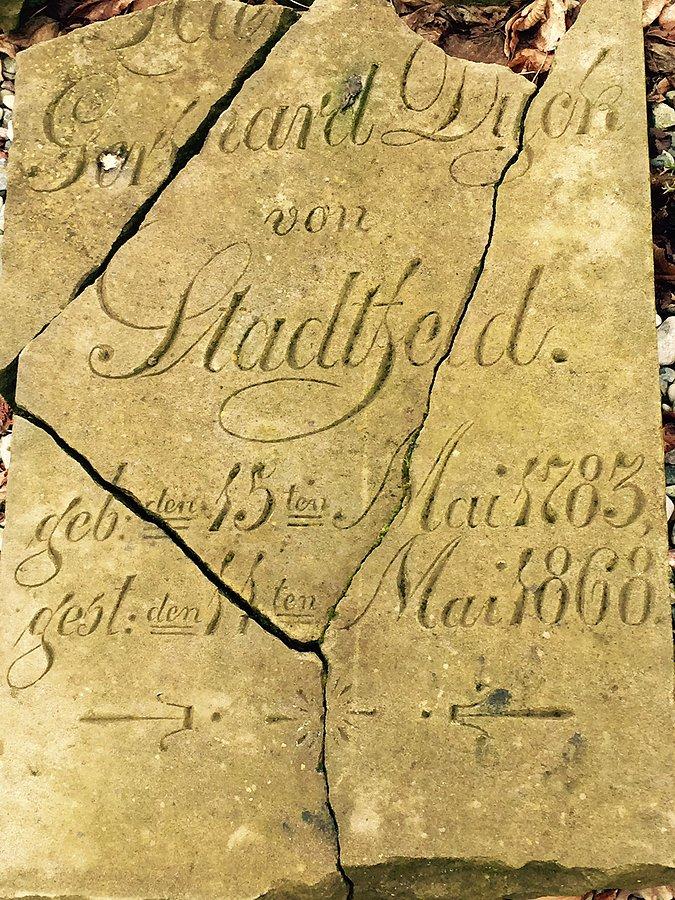 Gerhard Dyck
von
Stadtfeld.
geb: den 15ten Mai 1783,
gest: den 11ten Mai 1868.